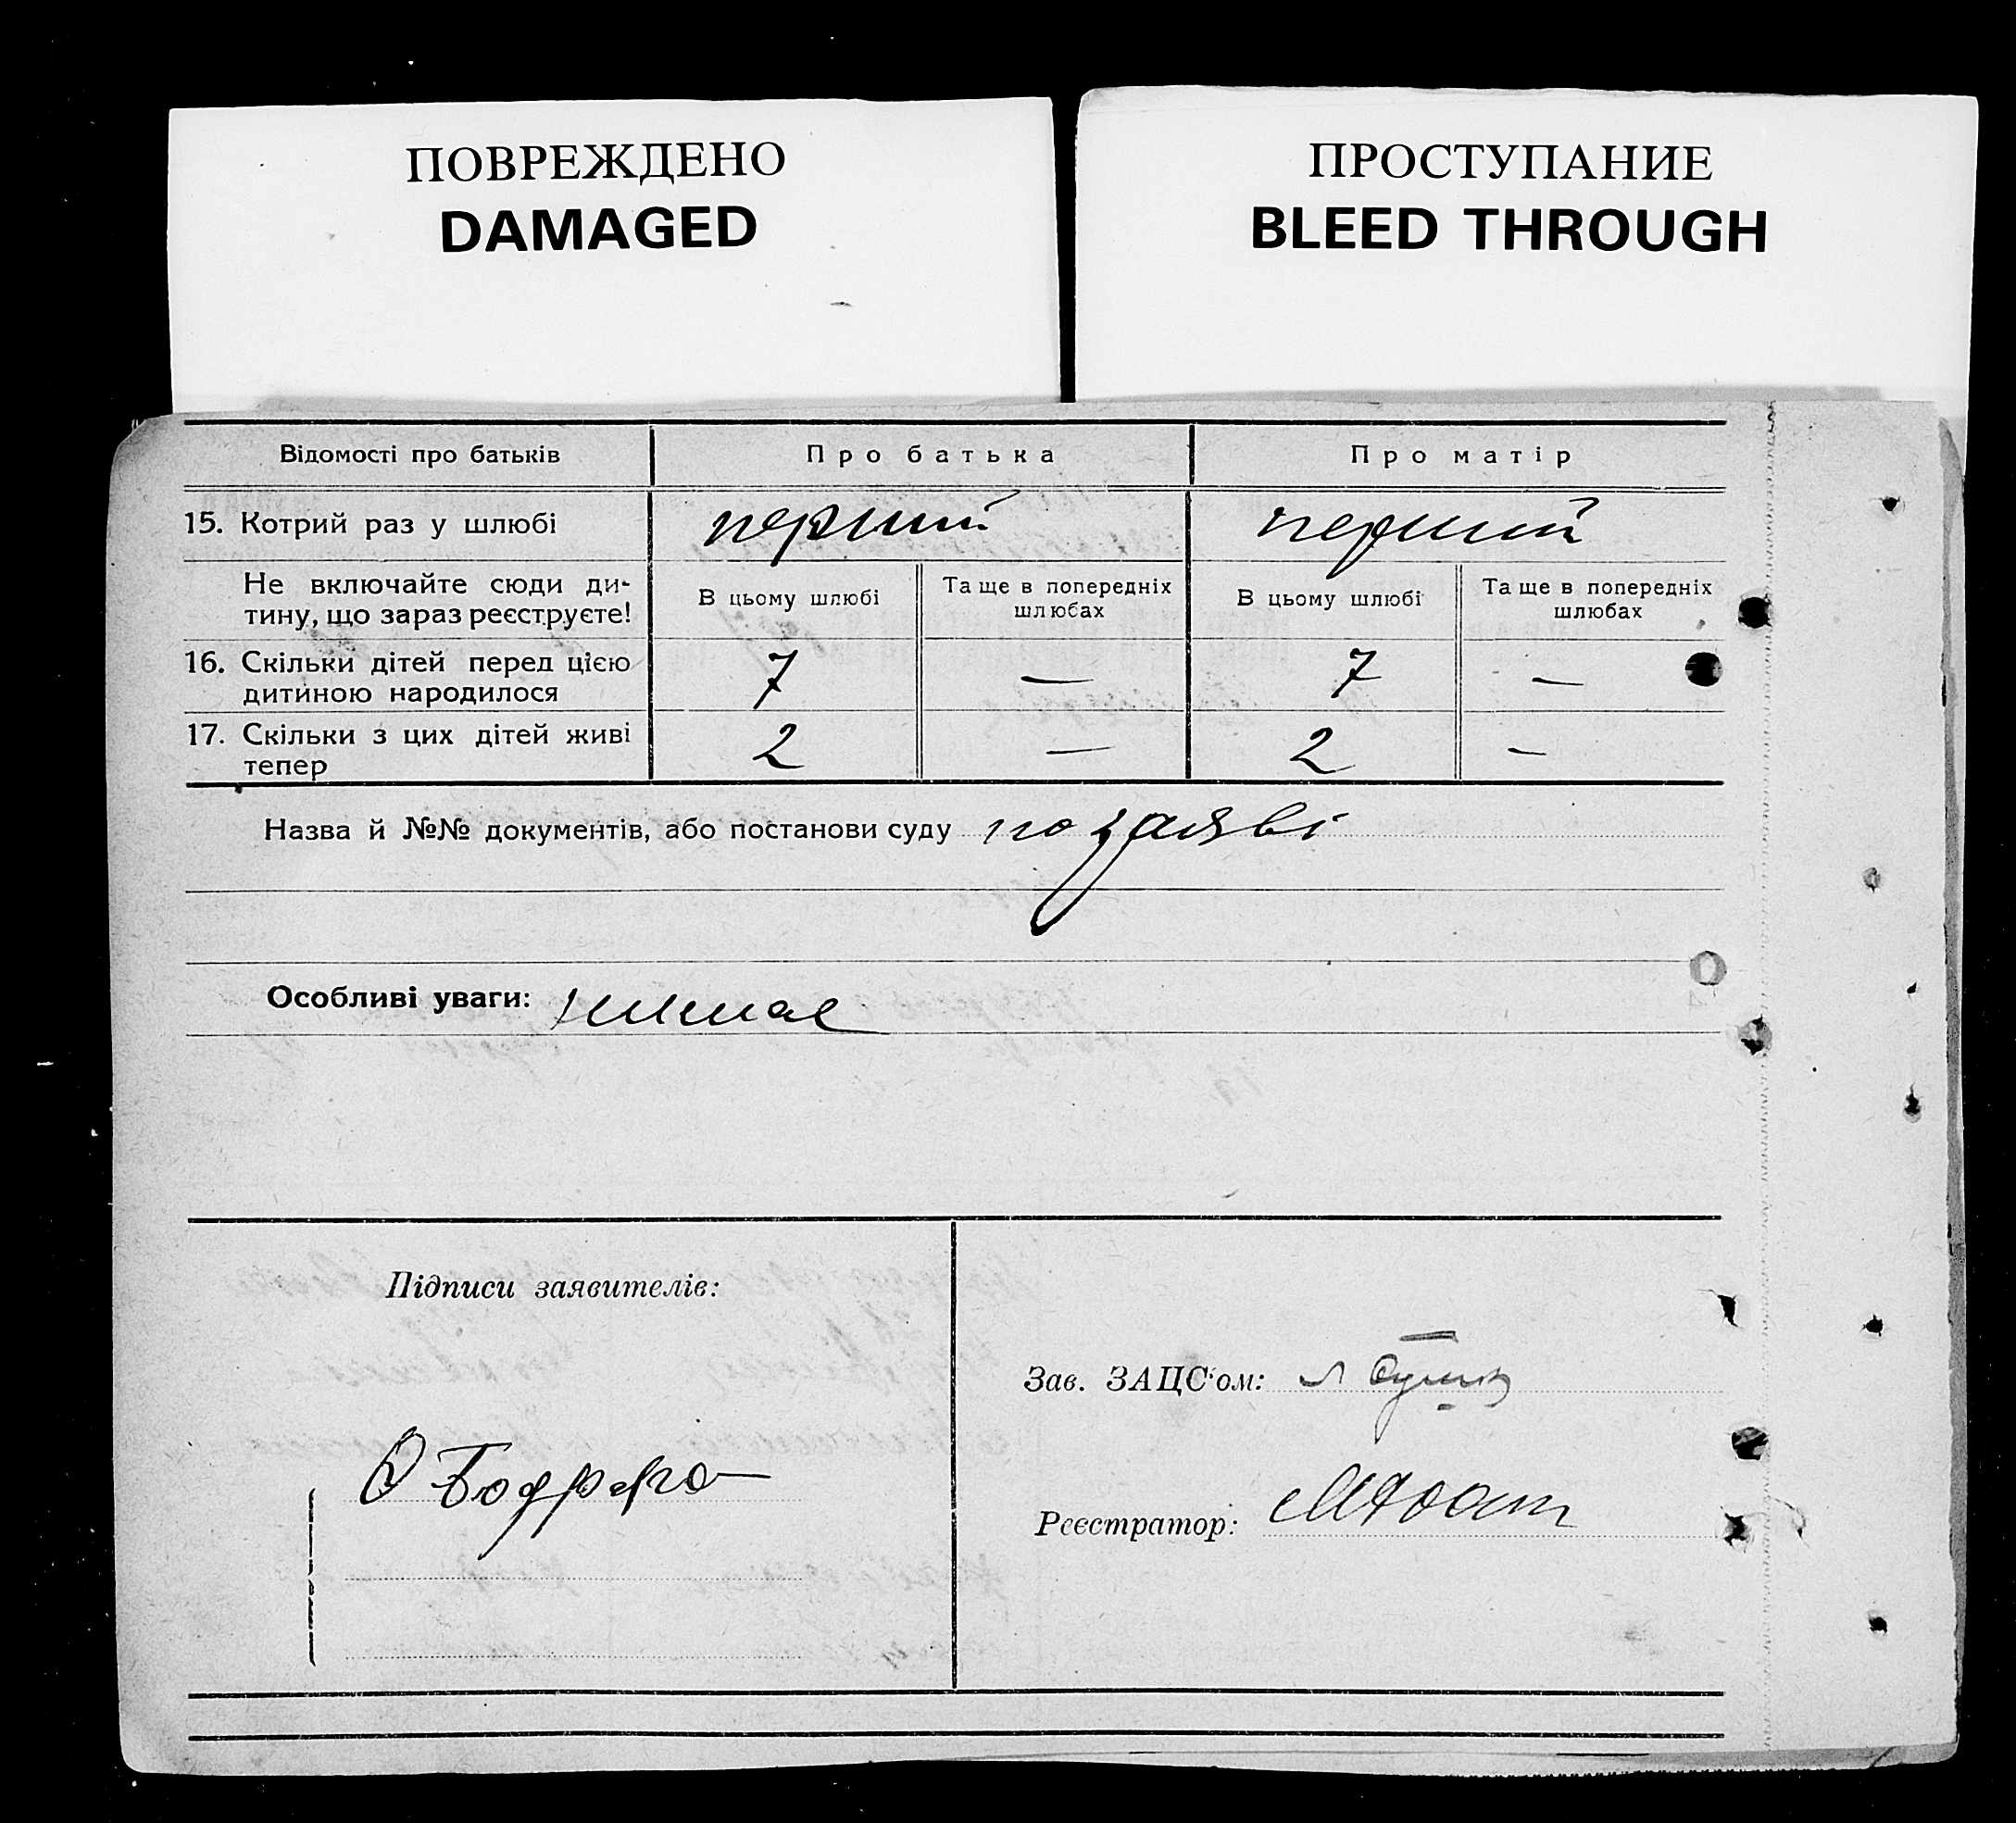 ПОВРЕЖДЕНО
DAMAGED
ПРОСТУПАНИЕ
BLEED THROUGH
Відомості про батьків Про батька Про матір
15. Котрий раз у шлюбі перший перший
Не включайте сюди ди-
тину, що зараз реєструєте!
В цьому шлюбі
Та ще в попередніх
шлюбах
В цьому шлюбі
Та ще в попередніх
шлюбах
16. Скільки дітей перед цією
дитиною народилося
7 — 7 —
17. Скільки з цих дітей живі
тепер
2 — 2 —
Назва й №№ документів, або постанови суду по заяві
Особливі уваги: немає
Підписи заявителів:
О
Зав. ЗАЦС'ом:
Реєстратор: